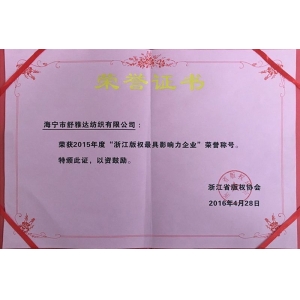 荣誉证书
海宁市舒雅达纺织有限公司：
荣获2015年度“浙江版权最具影响力企业”荣誉称号。
特颁此证，以资鼓励。
浙江省版权协会
2016年4月28日